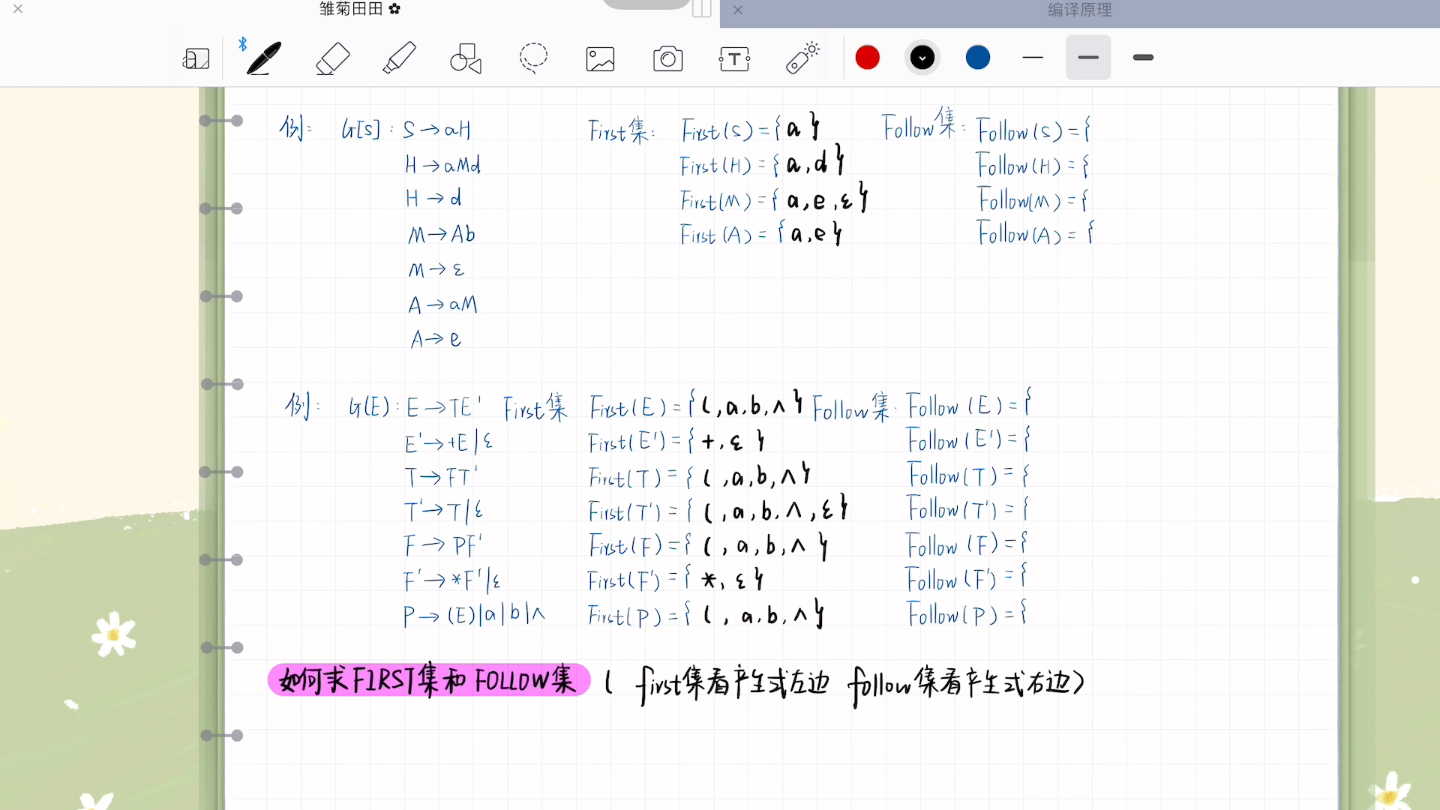 雏菊田田 ✿
编译原理
例： G[S]: S→aH First集: First(S)={a} Follow集: Follow(S)={
H→aMd First(H)={a,d} Follow(H)={
H→d First(M)={a,e,ε} Follow(M)={
M→Ab First(A)={a,e} Follow(A)={
M→ε
A→aM
A→e
例： G(E): E→TE' First集 First(E)={(,a,b,∧} Follow集: Follow(E)={
E'→+E|ε First(E')={+,ε} Follow(E')={
T→FT' First(T)={(,a,b,∧} Follow(T)={
T'→T|ε First(T')={(,a,b.∧,ε} Follow(T')={
F→PF' First(F)={(,a,b,∧} Follow(F)={
F'→*F'|ε First(F')={*,ε} Follow(F')={
P→(E)|a|b|∧ First(P)={(,a.b,∧} Follow(P)={
如何求FIRST集和FOLLOW集 ( first集看产生式左边 follow集看产生式右边)